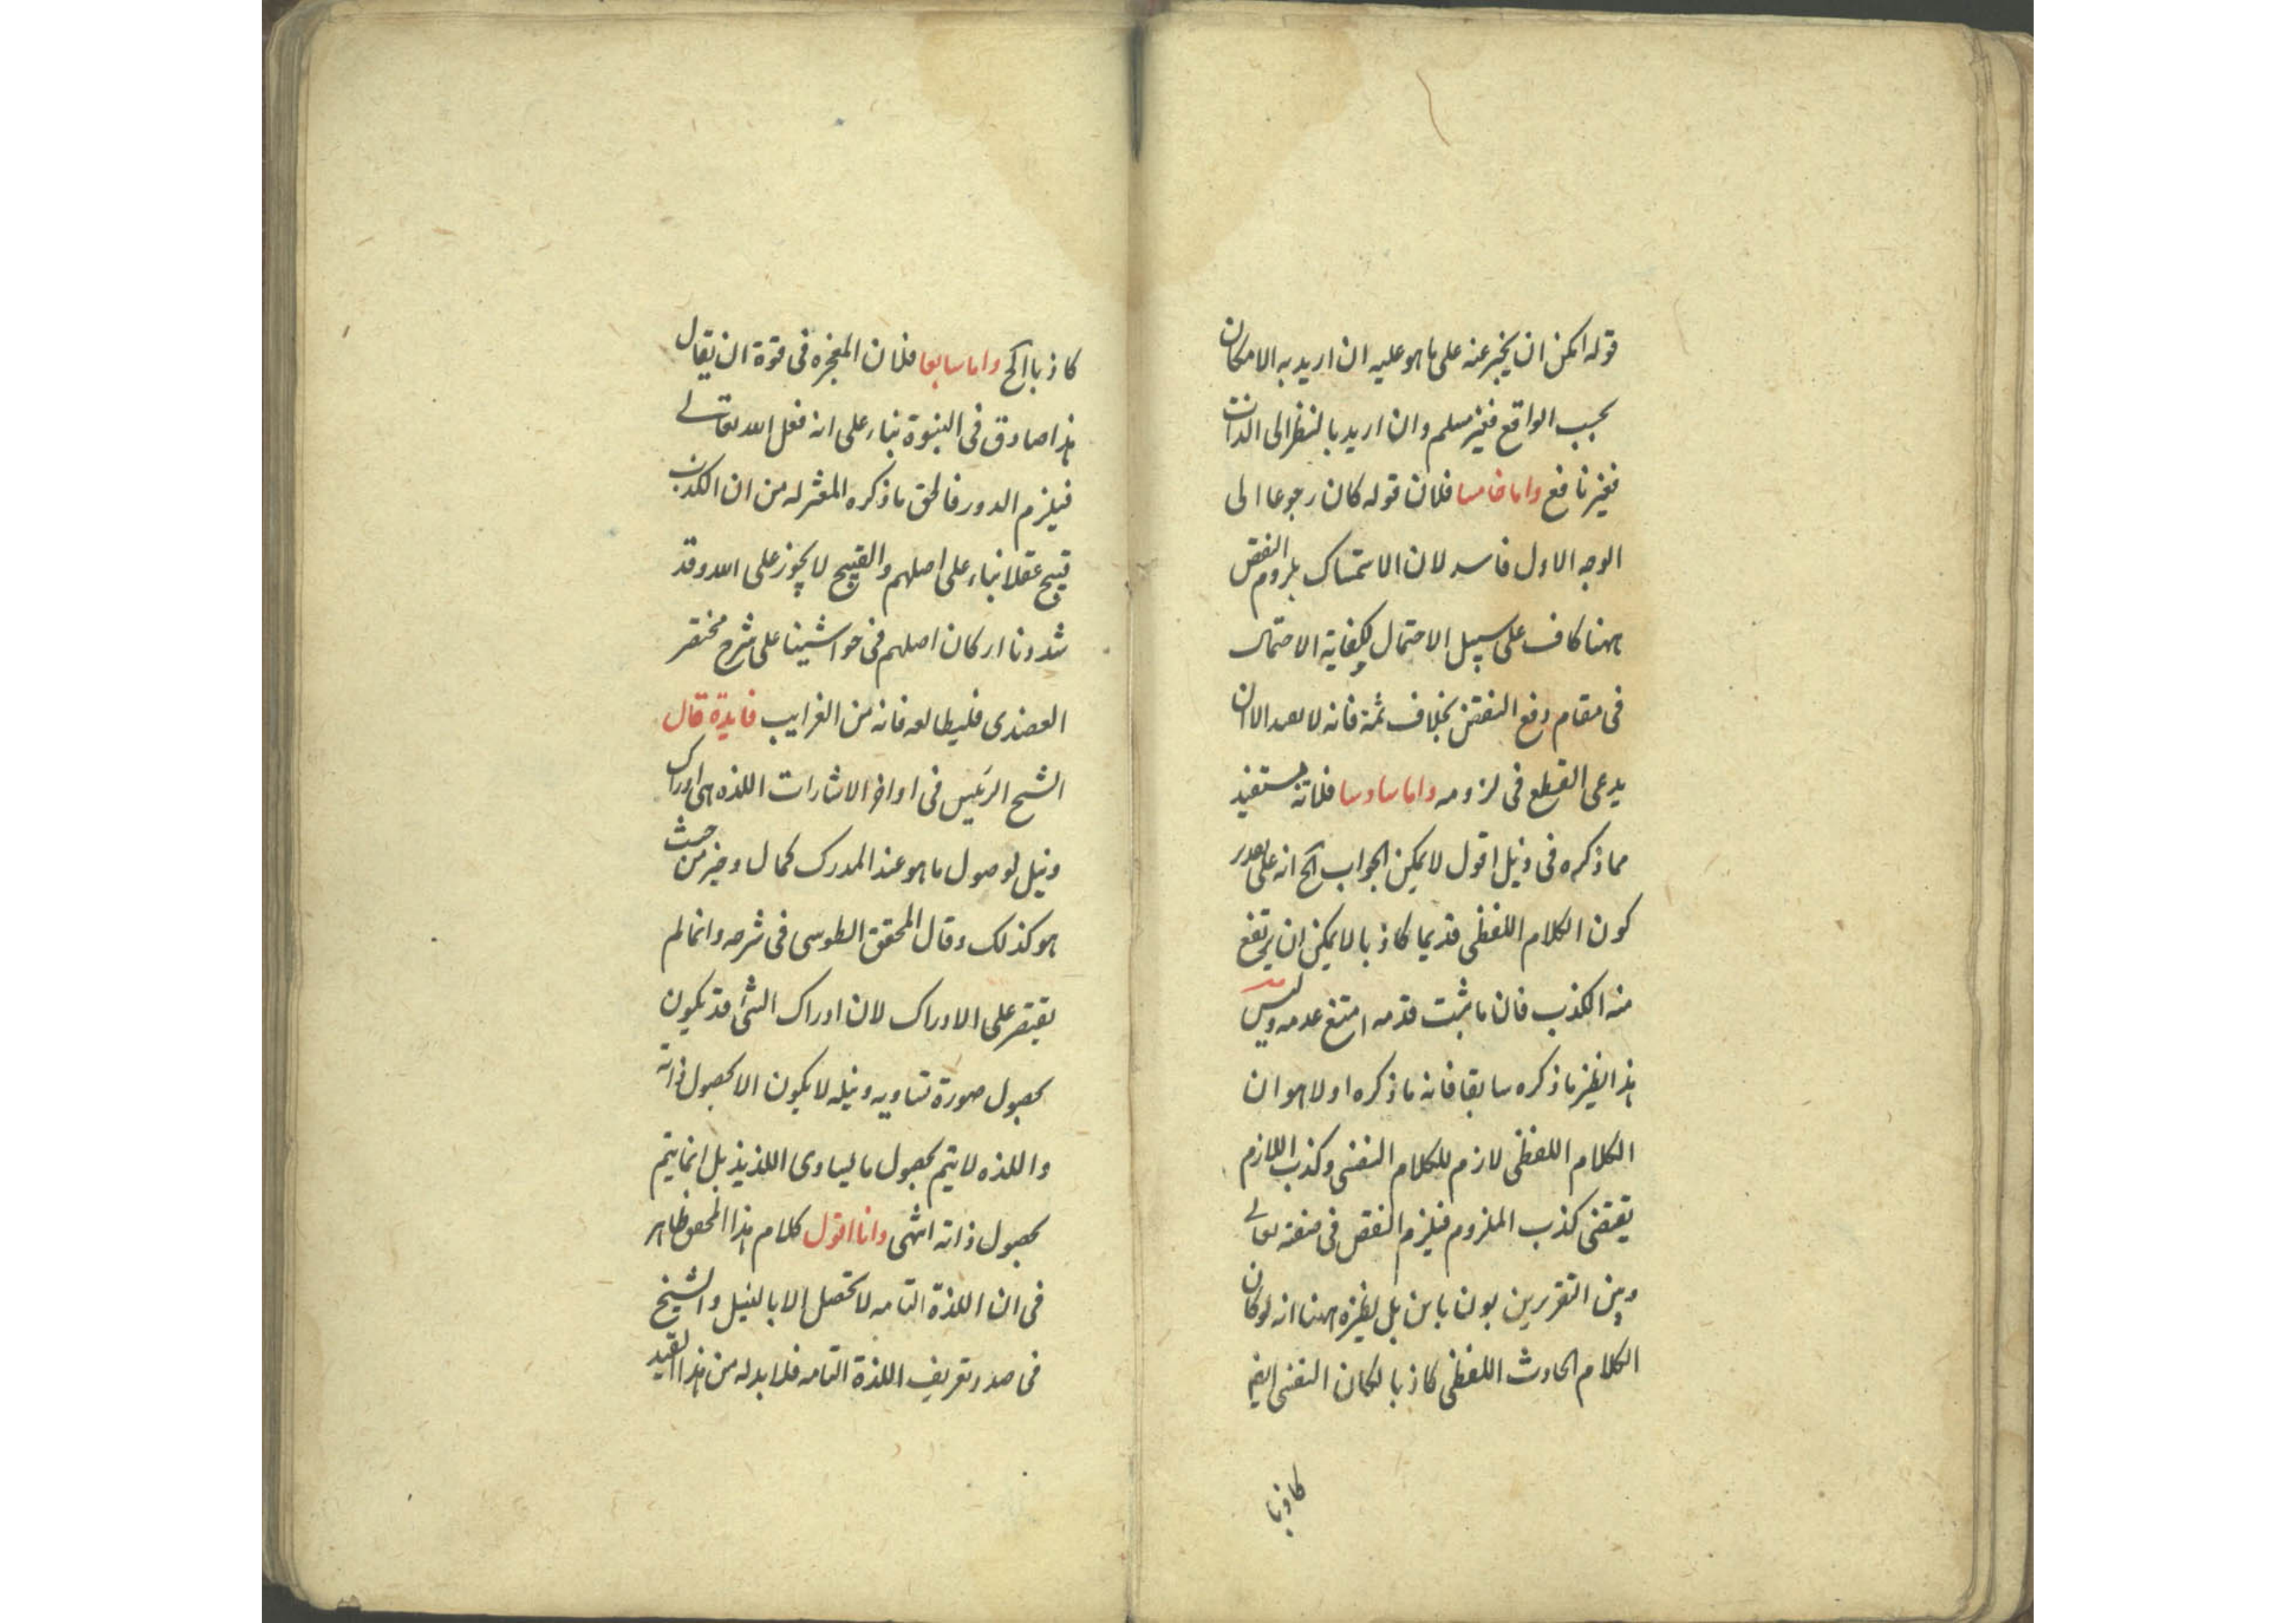 قوله امكن ان يخبر عنه على ما هو عليه ان اريد به الامكان
بحسب الواقع فغير مسلم وان اريد بالنظر الى الذات
فغير نافع واما خامسا فلان قوله كان رجوعا الى
الوجه الاول فاسد لان الاستمساك بلزوم النقص
ههنا كاف على سبيل الاحتمال لكفاية الاحتمال
فى مقام دفع النقض بخلاف ثمة فانه لا يفيد الا ان
يدعى القطع فى لزومه واما سادسا فلانه يستفيد
مما ذكره فى ذيل اقول لا يمكن الجواب الخ انه على تقدير
كون الكلام اللفظى قديما كاذبا لا يمكن ان يرتفع
منه الكذب فان ما ثبت قدمه امتنع عدمه وليس
هذا نظير ما ذكره سابقا فانه ما ذكره اولا هو ان
الكلام اللفظى لازم للكلام النفسى وكذب اللازم
يقتضى كذب الملزوم فيلزم النقص فى صفته تعالى
وبين التقريرين بون باين بل نظيره ههنا انه لو كان
الكلام الحادث اللفظى كاذبا لكان النفسى ايضا
كاذبا
كاذبا الخ واما سابعا فلان المعجزه فى قوة ان يقال
هذا صادق فى النبوة بناء على انه فعل الله تعالى
فيلزم الدور فالحق ما ذكره المعتزله من ان الكذب
قبيح عقلا بناء على اصلهم والقبيح لا يجوز على الله وقد
شددنا اركان اصلهم فى حواشينا على شرح مختصر
العضدى فليطالعه فانه من الغرايب فايدة قال
الشيخ الرئيس فى اواخر الاشارات اللذه هى ادراك
ونيل لوصول ما هو عند المدرك كمال وخير من حيث
هو كذلك وقال المحقق الطوسى فى شرحه وانما لم
يقتصر على الادراك لان ادراك الشئ قد يكون
بحصول صورة تساويه ونيله لا يكون الا بحصول ذاته
واللذه لا يتم بحصول ما يساوى اللذيذ بل انما يتم
بحصول ذاته انتهى وانا اقول كلام هذا المحقق ظاهر
فى ان اللذة التامه لا تحصل الا بالنيل والشيخ
فى صدد تعريف اللذة التامه فلا بد له من هذا القيد